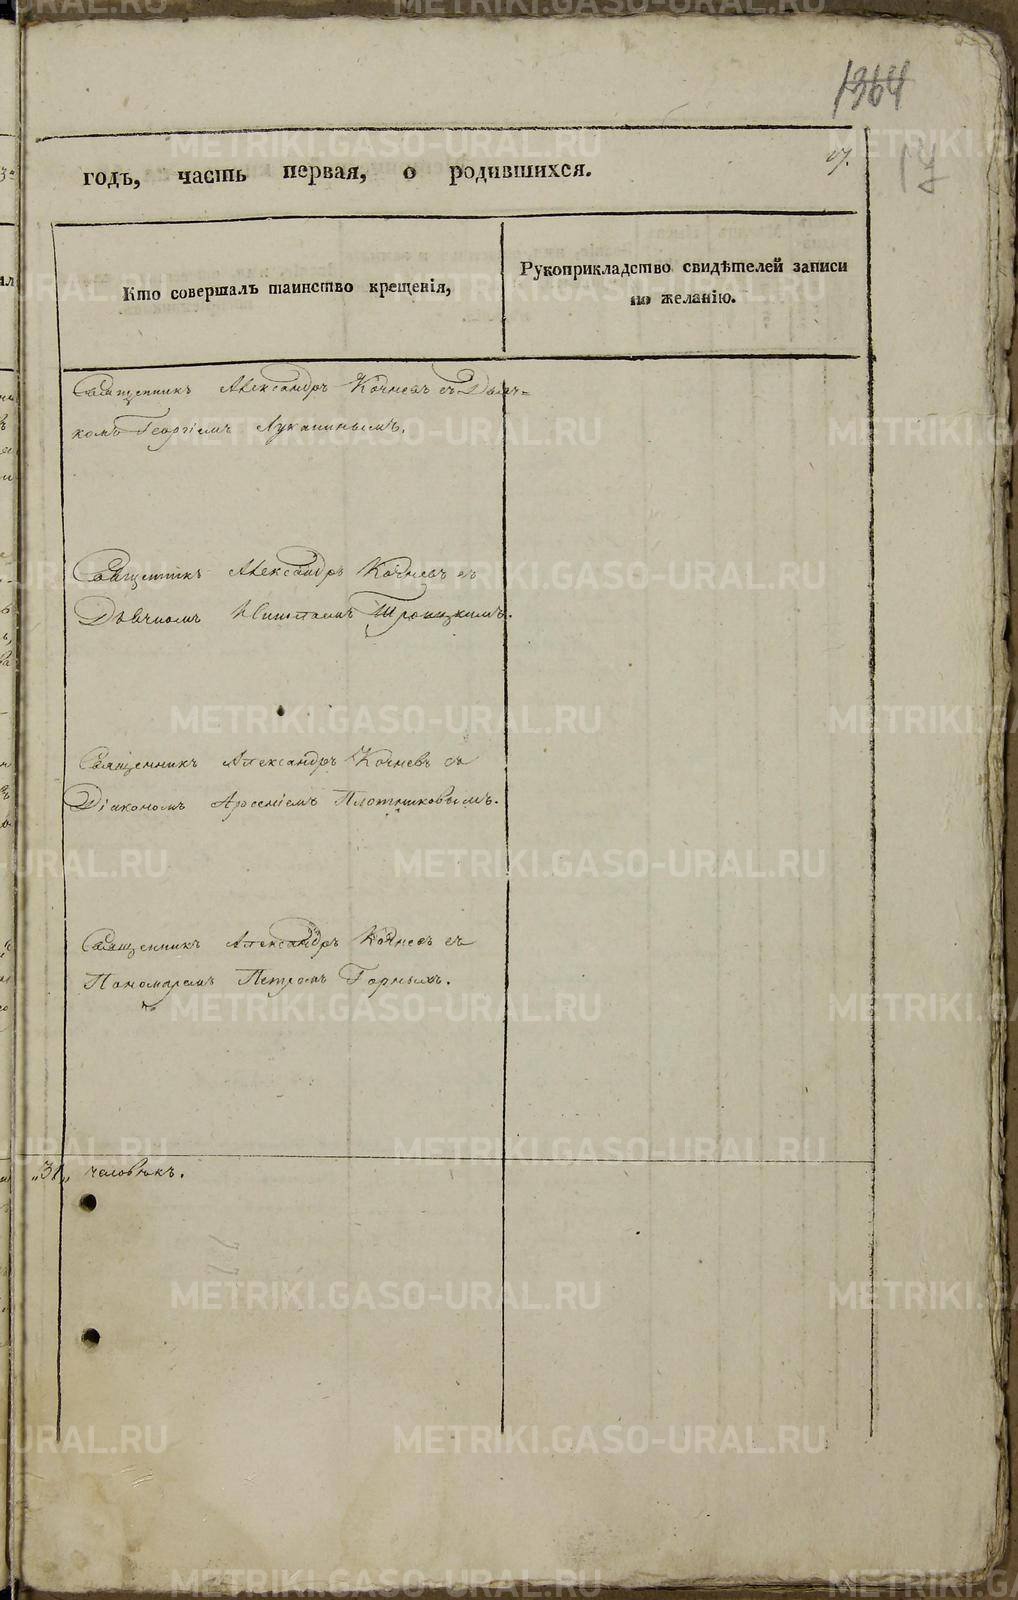 1364
17.
17
годъ, часть первая, о родившихся.
Кто совершалъ таинство крещенія,
Рукоприкладство свидѣтелей записи
по желанію.
Священникъ Александръ Кочневъ съ Дьяч-
комъ Георгіемъ Лукинымъ.
Священникъ Александръ Кочневъ съ
Дьячкомъ Троицкимъ.
Священникъ Александръ Кочневъ съ
Діакономъ Арсеніемъ Плотниковымъ.
Священникъ Александръ Кочневъ съ
Пономаремъ Петромъ Горныхъ.
„31„ человѣкъ.
METRIKI.GASO-URAL.RU